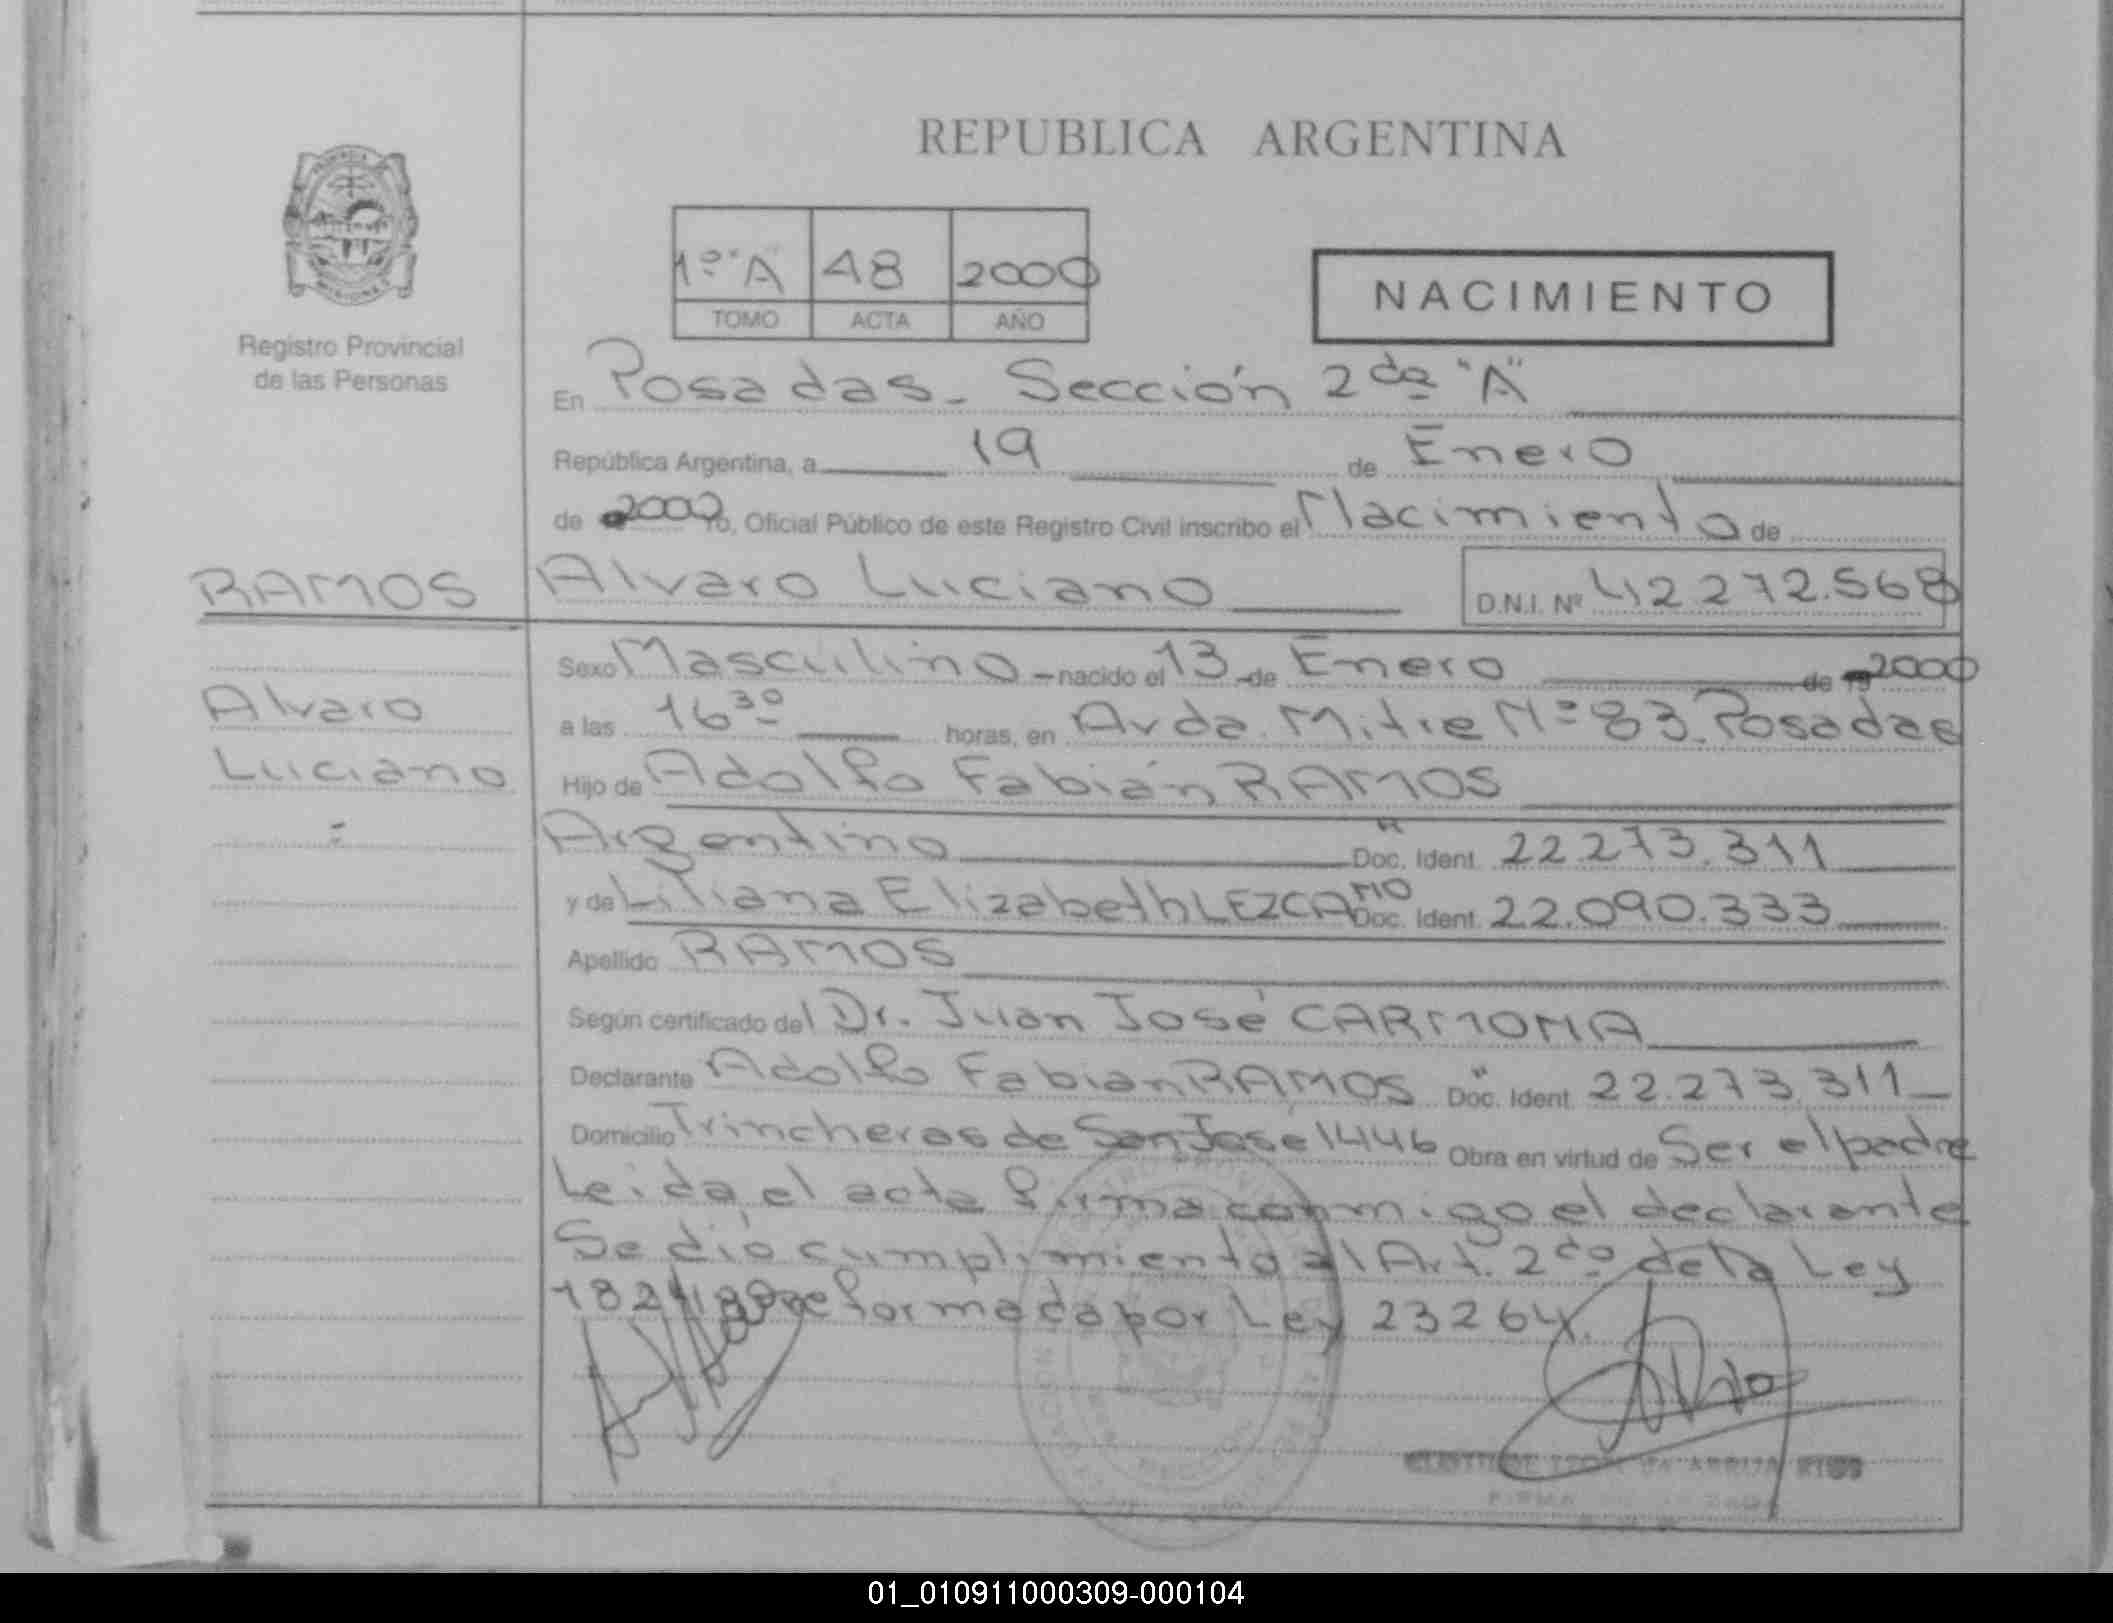 REPUBLICA ARGENTINA
1º "A" 48 2000
TOMO ACTA AÑO
NACIMIENTO
MISIONES
Registro Provincial
de las Personas
En Posadas - Sección 2da "A"
República Argentina, a 19 de Enero
de 2000 Yo, Oficial Público de este Registro Civil inscribo el Nacimiento de
RAMOS Alvaro Luciano D.N.I. Nº 42272.568
Sexo Masculino - nacido el 13 de Enero de 2000
Alvaro a las 16 30 horas, en Avda. Mitre Nº 83. Posadas
Luciano Hijo de Adolfo Fabián RAMOS
Argentino Doc. Ident. 22.273.311
y de Liliana Elizabeth LEZCANO Doc. Ident. 22.090.333
Apellido RAMOS
Según certificado del Dr. Juan José CARMONA
Declarante Adolfo Fabian RAMOS Doc. Ident. 22.273.311
Domicilio Trincheras de San José 1446 Obra en virtud de Ser el padre
Leida el acta firma conmigo el declarante
Se dió cumplimiento al Art. 2do de la Ley
reformada por Ley 23264.
01_010911000309-000104